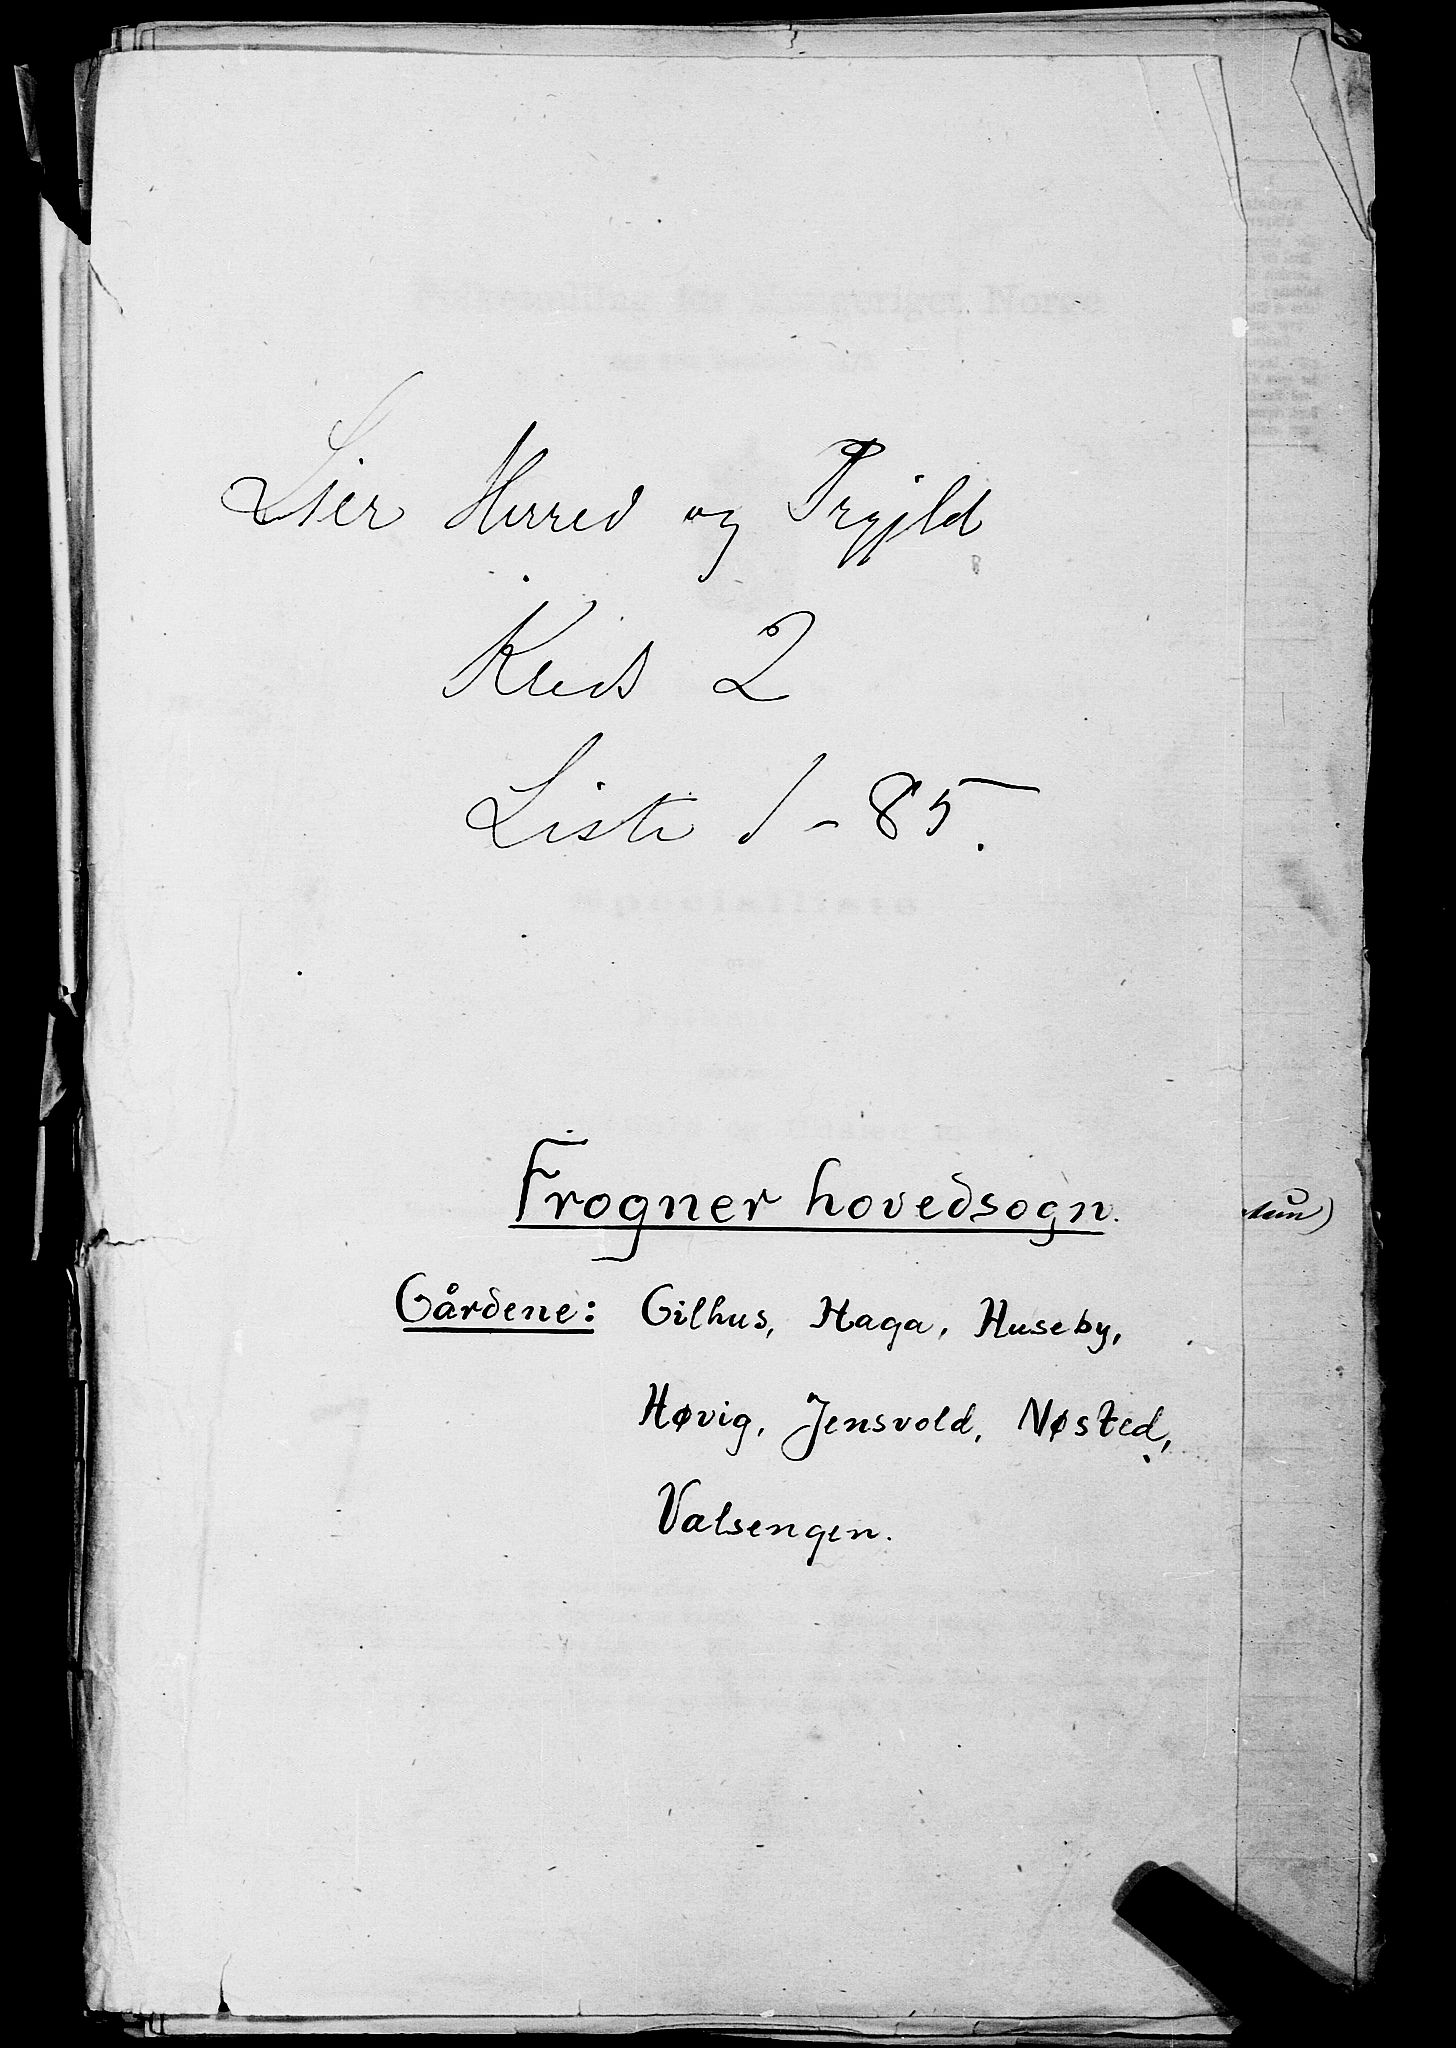 Lier Herred og Prgjld
Kreds 2
Liste 1 - 85.
Frogner hovedsogn.
Gårdene: Gilhus, Haga, Huseby,
Høvig, Jensvold, Nøsted,
Valsengen.